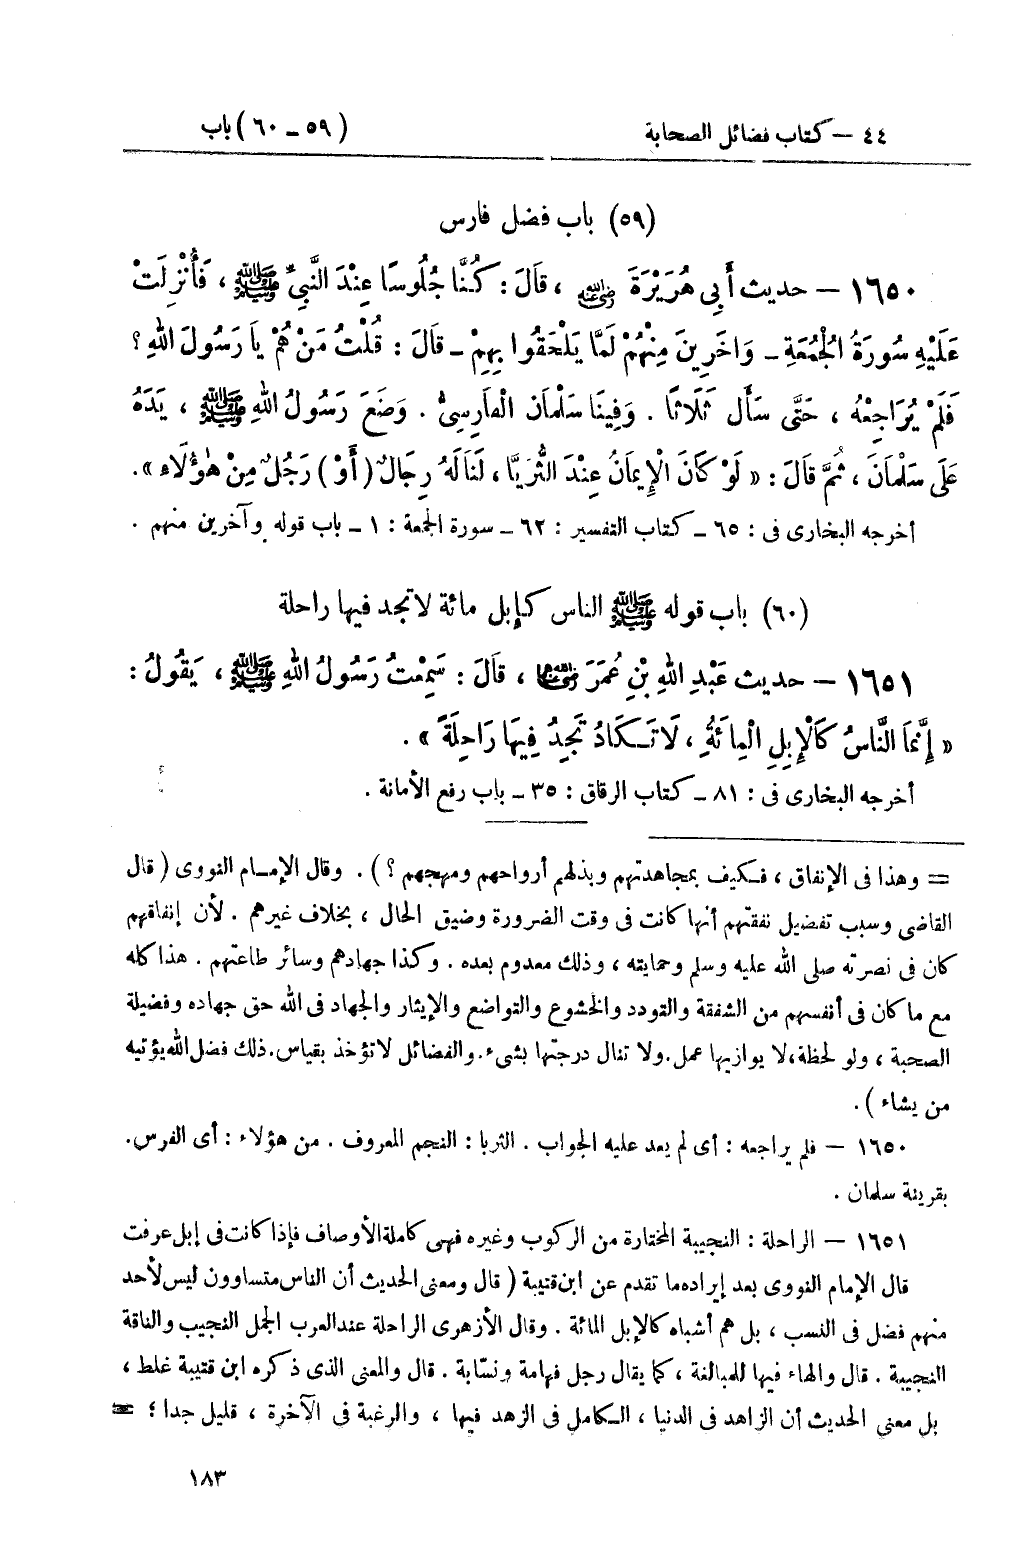 ٤٤ – كتاب فضائل الصحابة (٥٩ – ٦٠) باب
(٥٩) باب فضل فارس
١٦٥٠ – حديث أَبِي هُرَيْرَةَ رضي الله عنه ، قَالَ : كُنَّا جُلُوسًا عِنْدَ النَّبِيِّ ﷺ ، فَأُنْزِلَتْ
عَلَيْهِ سُورَةُ الْجُمُعَةِ – وَآخَرِينَ مِنْهُمْ لَمَّا يَلْحَقُوا بِهِمْ – قَالَ : قُلْتُ مَنْ هُمْ يَا رَسُولَ اللهِ ؟
فَلَمْ يُرَاجِعْهُ ، حَتَّى سَأَلَ ثَلَاثًا . وَفِينَا سَلْمَانُ الْفَارِسِيُّ . وَضَعَ رَسُولُ اللهِ ﷺ ، يَدَهُ
عَلَى سَلْمَانَ ، ثُمَّ قَالَ : « لَوْ كَانَ الْإِيمَانُ عِنْدَ الثُّرَيَّا ، لَنَالَهُ رِجَالٌ ( أَوْ ) رَجُلٌ مِنْ هٰؤُلَاءِ » .
أخرجه البخارى فى : ٦٥ – كتاب التفسير : ٦٢ – سورة الجمعة : ١ – باب قوله وآخرين منهم .
(٦٠) باب قوله ﷺ الناس كإبل مائة لا تجد فيها راحلة
١٦٥١ – حديث عَبْدِ اللهِ بْنِ عُمَرَ رضي الله عنهما ، قَالَ : سَمِعْتُ رَسُولَ اللهِ ﷺ ، يَقُولُ :
« إِنَّمَا النَّاسُ كَالْإِبِلِ الْمِائَةُِ ، لَا تَكَادُ تَجِدُ فِيهَا رَاحِلَةً » .
أخرجه البخارى فى : ٨١ – كتاب الرقاق : ٣٥ – باب رفع الأمانة .
= وهذا فى الإنفاق ، فكيف بمجاهدتهم وبذلهم أرواحهم ومهجهم ؟ ) . وقال الإمام النووى ( قال
القاضى وسبب تفضيل نفقتهم أنها كانت فى وقت الضرورة وضيق الحال ، بخلاف غيرهم . لأن إنفاقهم
كان فى نصرته صلى الله عليه وسلم وحمايته ، وذلك معدوم بعده . وكذا جهادهم وسائر طاعتهم . هذا كله
مع ما كان فى أنفسهم من الشفقة والتودد والخشوع والتواضع والإيثار والجهاد فى الله حق جهاده وفضيلة
الصحبة ، ولو لحظة، لا يوازيها عمل . ولا تنال درجتها بشىء . والفضائل لا تؤخذ بقياس . ذلك فضل الله يؤتيه
من يشاء ) .
١٦٥٠ – فلم يراجعه : أى لم يعد عليه الجواب . الثريا : النجم المعروف . من هؤلاء : أى الفرس .
بقرينة سلمان .
١٦٥١ – الراحلة : النجيبة المختارة من الركوب وغيره فهى كاملة الأوصاف فإذا كانت فى إبل عرفت
قال الإمام النووى بعد إيراده ما تقدم عن ابن قتيبة ( قال ومعنى الحديث أن الناس متساوون ليس لأحد
منهم فضل فى النسب ، بل هم أشباه كالإبل المائة . وقال الأزهرى الراحلة عند العرب الجمل النجيب والناقة
النجيبة . قال والهاء فيها للمبالغة ، كما يقال رجل فهامة ونسّابة . قال والمعنى الذى ذكره ابن قتيبة غلط ،
بل معنى الحديث أن الزاهد فى الدنيا ، الكامل فى الزهد فيها ، والرغبة فى الآخرة ، قليل جدا ؛ =
١٨٣